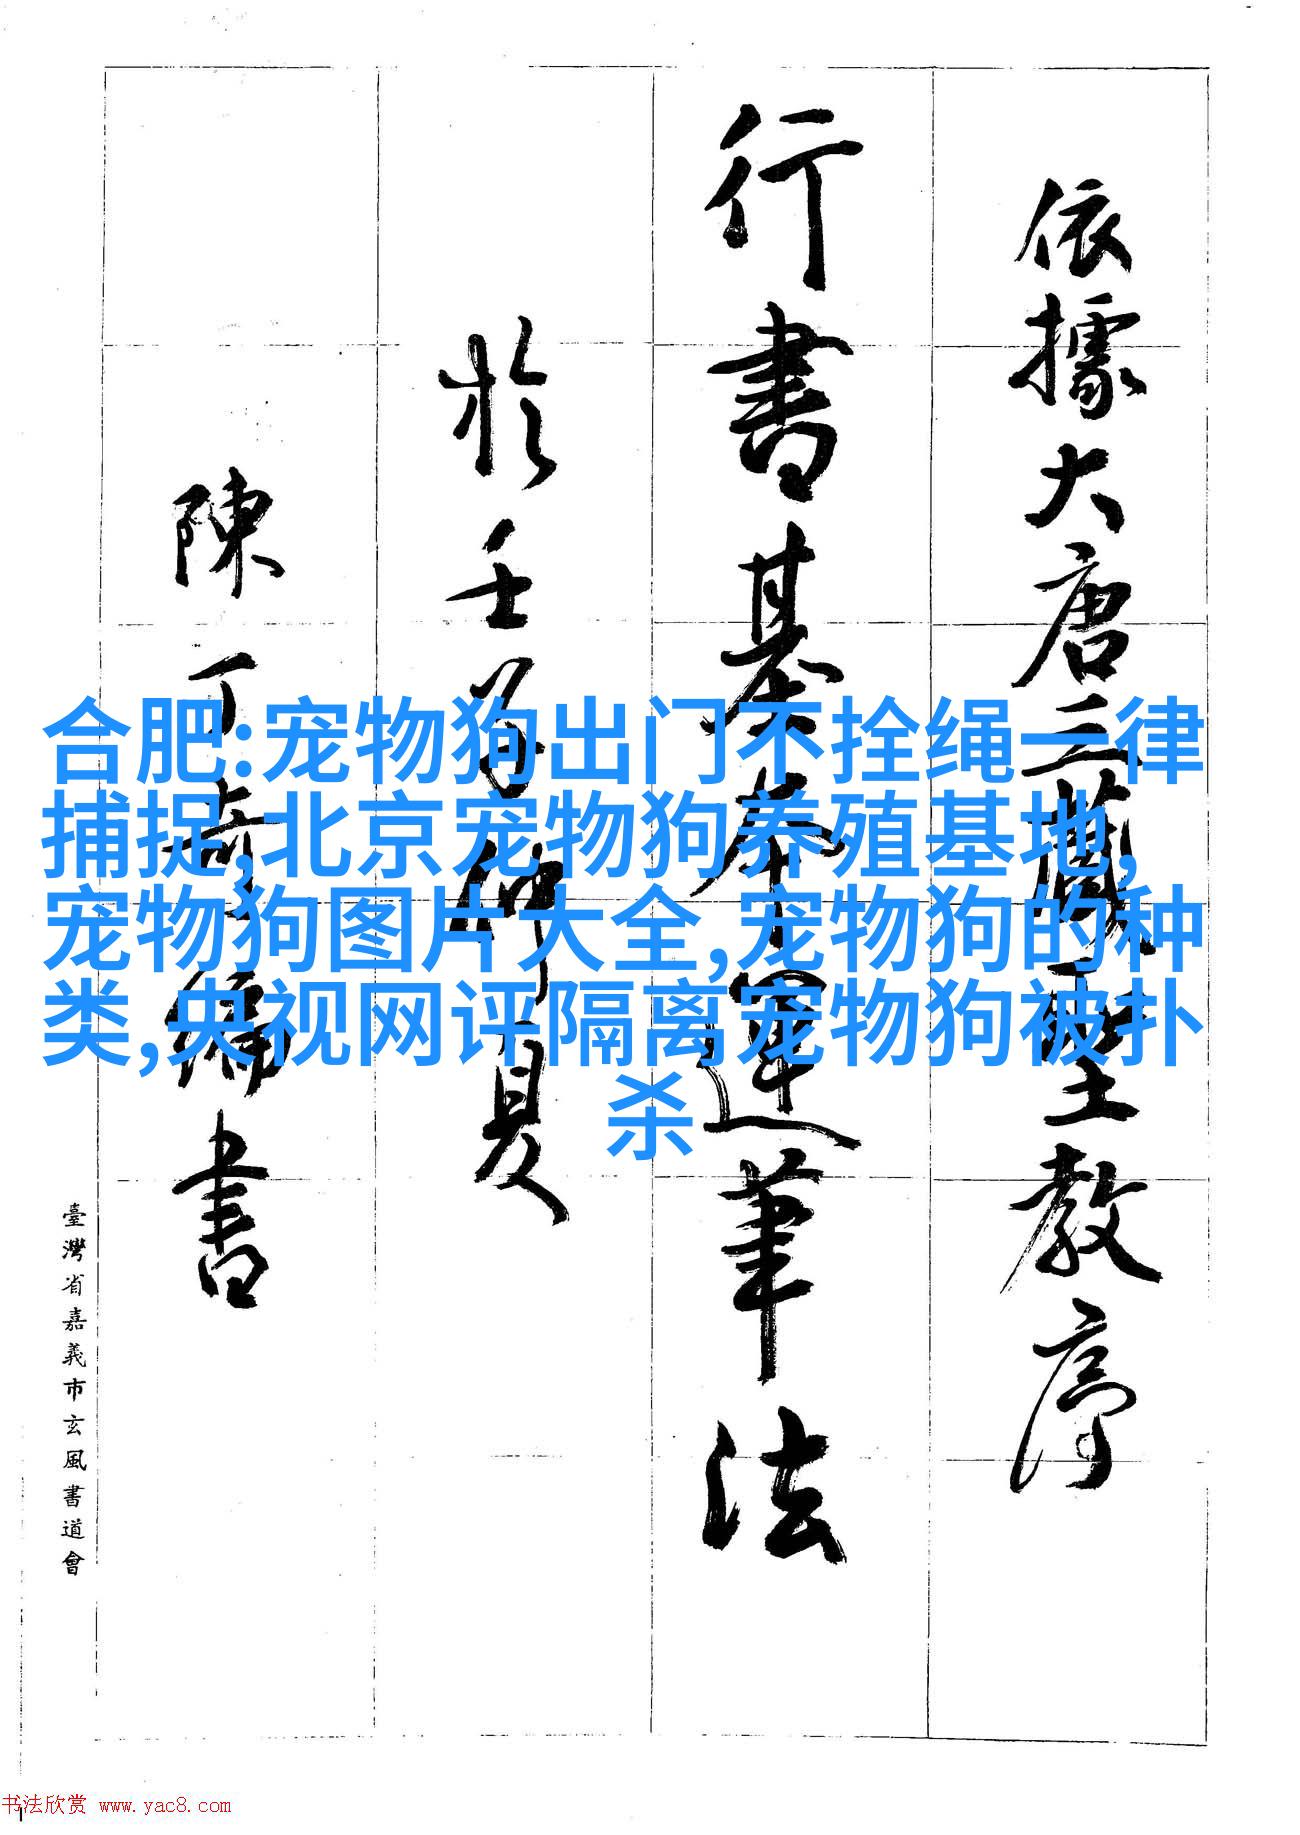 依據大唐三藏聖教序
行書基本運筆法
於壬申仲夏
陳丁奇編書
臺灣省嘉義市玄風書道會
合肥:宠物狗出门不拴绳一律
捕捉,北京宠物狗养殖基地,
宠物狗图片大全,宠物狗的种
类,央视网评隔离宠物狗被扑
杀
书法欣赏 www.yac8.com